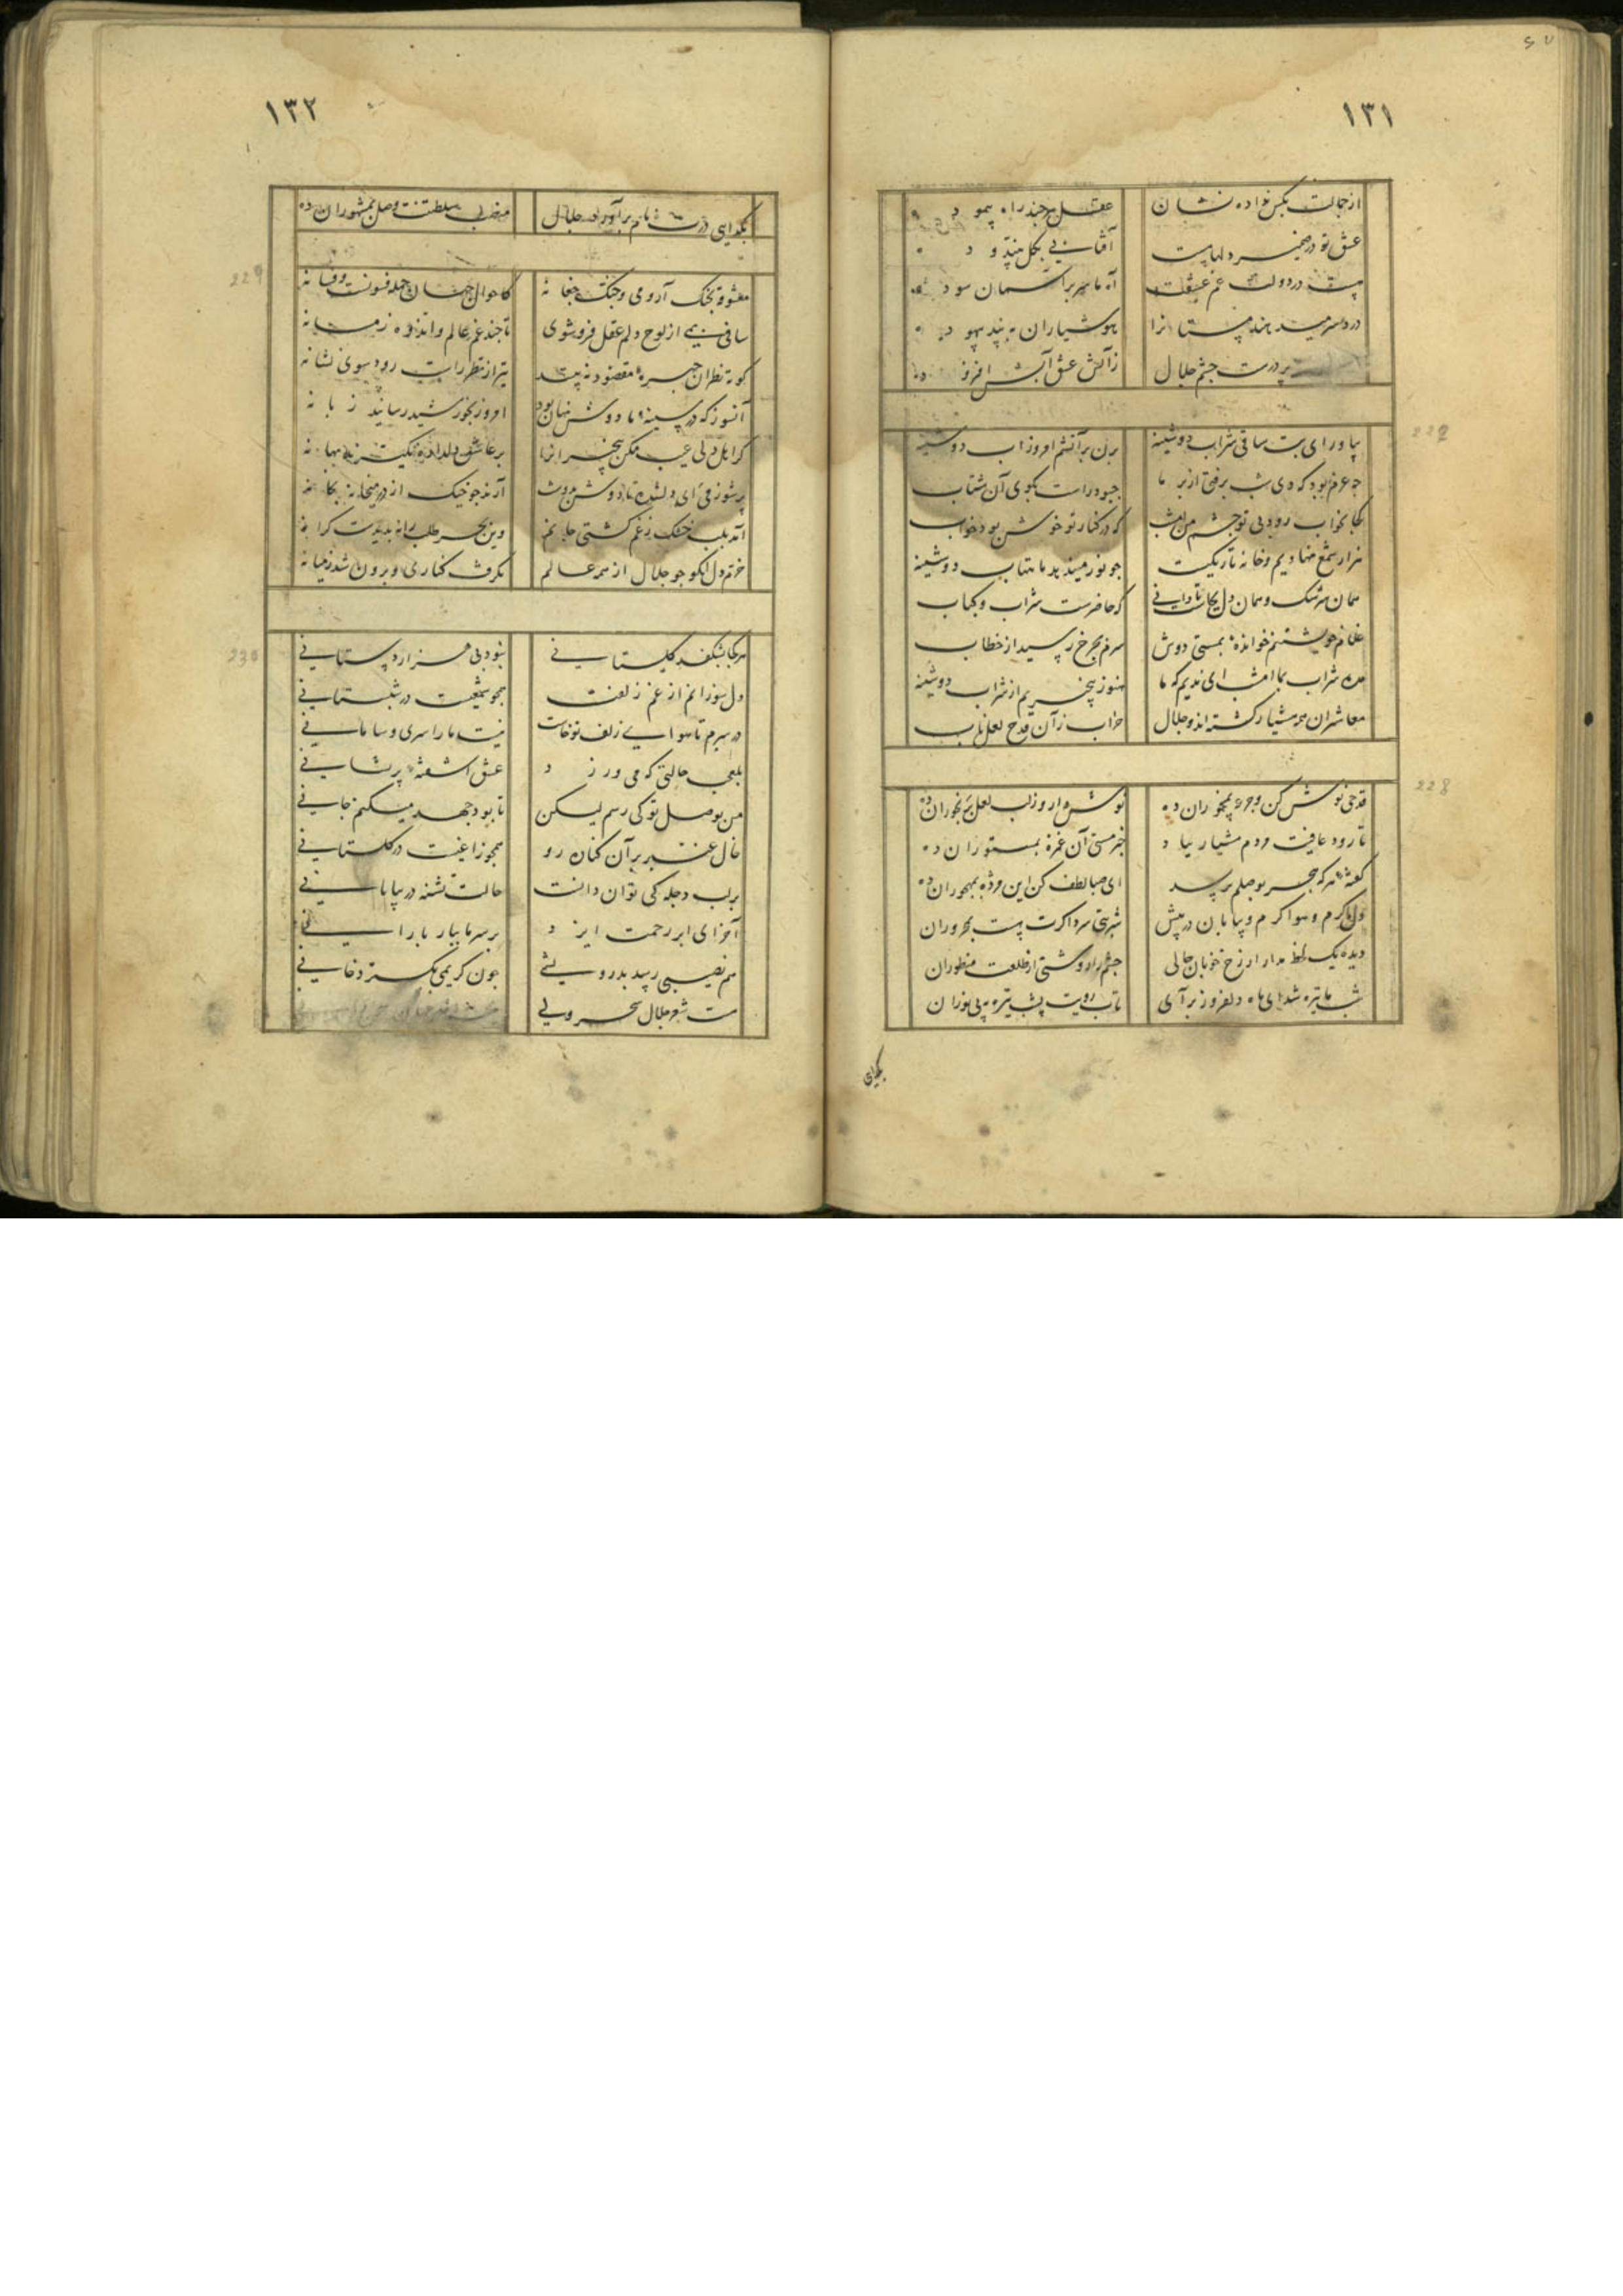 ۱۳۱
از جمالت بکس نداده نشان
عقل هر چند راه پیمود
عشق تو در ضمیر دلهاست
آفتابی بکل
در دولت غم عشقت
آه ما سر بر آسمان سود
درد سر میدهند مستانرا
هوشیاران به پند
بر درت چشم جلال
زآتش عشق آتش افزود
229
بیاور ای بت ساقی شراب دوشینه
بزن بر آتشم امروز آب دوشینه
چه عزم بود که دی شب برفتی از بر ما
بگوی آن شتاب
کجا بخواب رود بی تو چشم من امشب
که در کنار تو خوش بود خواب
هزار شمع نهادیم و خانه تاریکست
چو نور میندهد ماهتاب دوشینه
همان سرشک و همان دل
که حاضرست شراب و کباب
غلام خویشتنم خوانده بمستی دوش
سرم بچرخ رسید از خطاب
مده شراب بما امشب ای ندیم که ما
هنوز بیخبریم از شراب دوشینه
معاشران همه هشیار گشته اند و جلال
خراب از آن قدح لعل ناب
228
قدحی نوش کن و جرعه بمخموران ده
نوش دارو ز لب لعل برنجوران ده
تا رود عافیت مردم هشیار بباد
خبر مستی آن غمزه بمستوران ده
گفته هر که بهجر بوصلم برسد
ای صبا لطف کن این مژده بمهجوران ده
دل ما گرم و هوا گرم و بیابان در پیش
شربتی سرد اگرت هست بمحروران
دیده یک لحظه مدار از رخ خوبان خالی
چشم را روشنی از طلعت منظوران
شب ما تیره شد ای ماه دلفروز برآی
تاب رویت بشب تیره بی نوران
بگدای
۱۳۲
بگدای درت نام برآورد جلال
منصب سلطنت وصل بمشهوران ده
229
معشوقه بچنگ آر و می و چنگ و چغانه
کاحوال جهان جمله فسونست و فسانه
ساقی بمی از لوح دلم عقل فروشوی
تا چند غم عالم و اندوه زمانه
کوته نظران چهره مقصود نه بینند
تیر از نظر راست رود سوی نشانه
آنسوز که در سینه ما دوش نهان بود
امروز بخورشید رسانید زبانه
گر اهل دلی عیب مکن بیخبرانرا
بر عاشق دلداده مگیر بهانه
پر شو ز می ای دلشده تا دوش بدوشت
آرند چو خیک از در میخانه بخانه
آمد بلب خشک ز غم کشتی جانم
وین بحر طلب را نه پدیدست کرانه
خرم دل آنکو چو جلال از همه عالم
بگرفت کناری و برون شد ز میانه
230
هر کجا بشکفد گلستانی
نبود بی هزاردستانی
دل سوزانم از غم زلفت
همچو شمعیست در شبستانی
در سرم تا هوای زلف تو خاست
نیست ما را سری و سامانی
بلعجب حالتی که می ورزد
عشق آشفته پریشانی
من بوصل تو کی رسم لیکن
تا بود جهد میکنم جانی
خال عنبر بر آن کنان رو
همچو زاغیست در گلستانی
بر لب دجله کی توان دانست
حالت تشنه در بیابانی
آخر ای ابر رحمت ایزد
بر سر ما ببار بارانی
هم نصیبی رسد بدرویشی
چون کریمی بگسترد خانی
هست شعر جلال